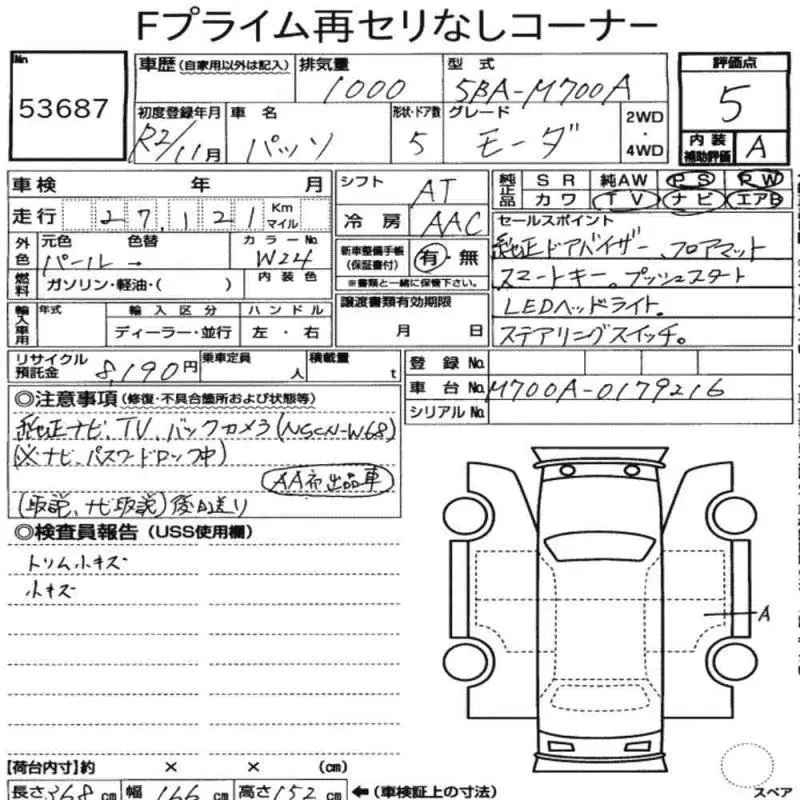 Fプライム再セリなしコーナー
No
53687
車歴 (自家用以外は記入)
排気量
1000
型式
5BA-M700A
評価点
5
初度登録年月
R2/11月
車名
パッソ
形状・ドア数
5
グレード
モーダ
2WD
・
4WD
内装補助評価
A
車検 年 月
シフト
AT
純正品
SR 純AW PS PW
カワ TV ナビ エアB
走行 27,121 Km マイル
冷房
AAC
セールスポイント
純正ドアバイザー、フロアマット
スマートキー。プッシュスタート
LEDヘッドライト。
ステアリングスイッチ。
外色
元色 色替
パール →
カラーNo.
W24
新車整備手帳
(保証書付)
有・無
※書類と一緒に保管下さい。
燃料
ガソリン・軽油・( )
内装色
譲渡書類有効期限
月 日
輸入車用
年式
輸入区分
ハンドル
ディーラー・並行
左・右
リサイクル預託金
8,190円
乗車定員
人
積載量
t
登録No.
車台No.
M700A-0179216
シリアルNo.
◎注意事項 (修復・不具合箇所および状態等)
純正ナビ、TV、バックカメラ(NSCN-W68)
(※ナビ、パスワードロック中)
AA初出品車
(取説、ナビ取説)後日送り
◎検査員報告 (USS使用欄)
トリム小キズ
小キズ
A
【荷台内寸】約 × × (cm)
長さ368cm 幅166cm 高さ152cm ← (車検証上の寸法)
スペア